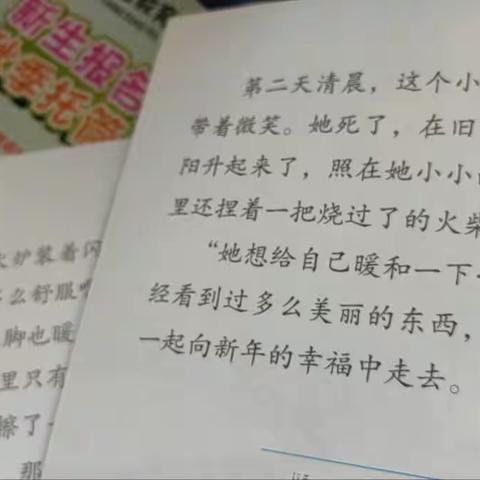 新生报告
秋季托管
第二天清晨，这个小
带着微笑。她死了，在旧
阳升起来了，照在她小小
里还捏着一把烧过了的火柴
“她想给自己暖和一下
经看到过多么美丽的东西，
一起向新年的幸福中走去。
火炉装着闪
么舒服
脚也暖
里只有
擦了一
那